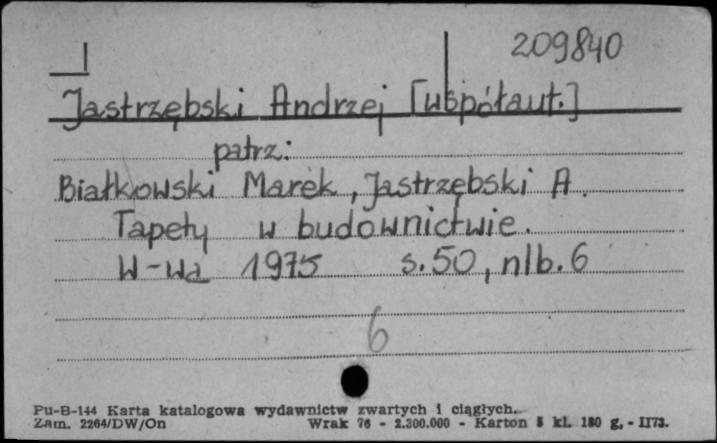 209840
Jastrzębski Andrzej [współaut.]
patrz:
Białkowski Marek, Jastrzębski A.
Tapety w budownictwie.
W-wa 1975 s.50, nlb.6
6
Pu-B-144 Karta katalogowa wydawnictw zwartych i ciągłych.
Zam. 2264/DW/On Wrak 76 - 2.300.000 - Karton 5 kl. 180 g. - II73.